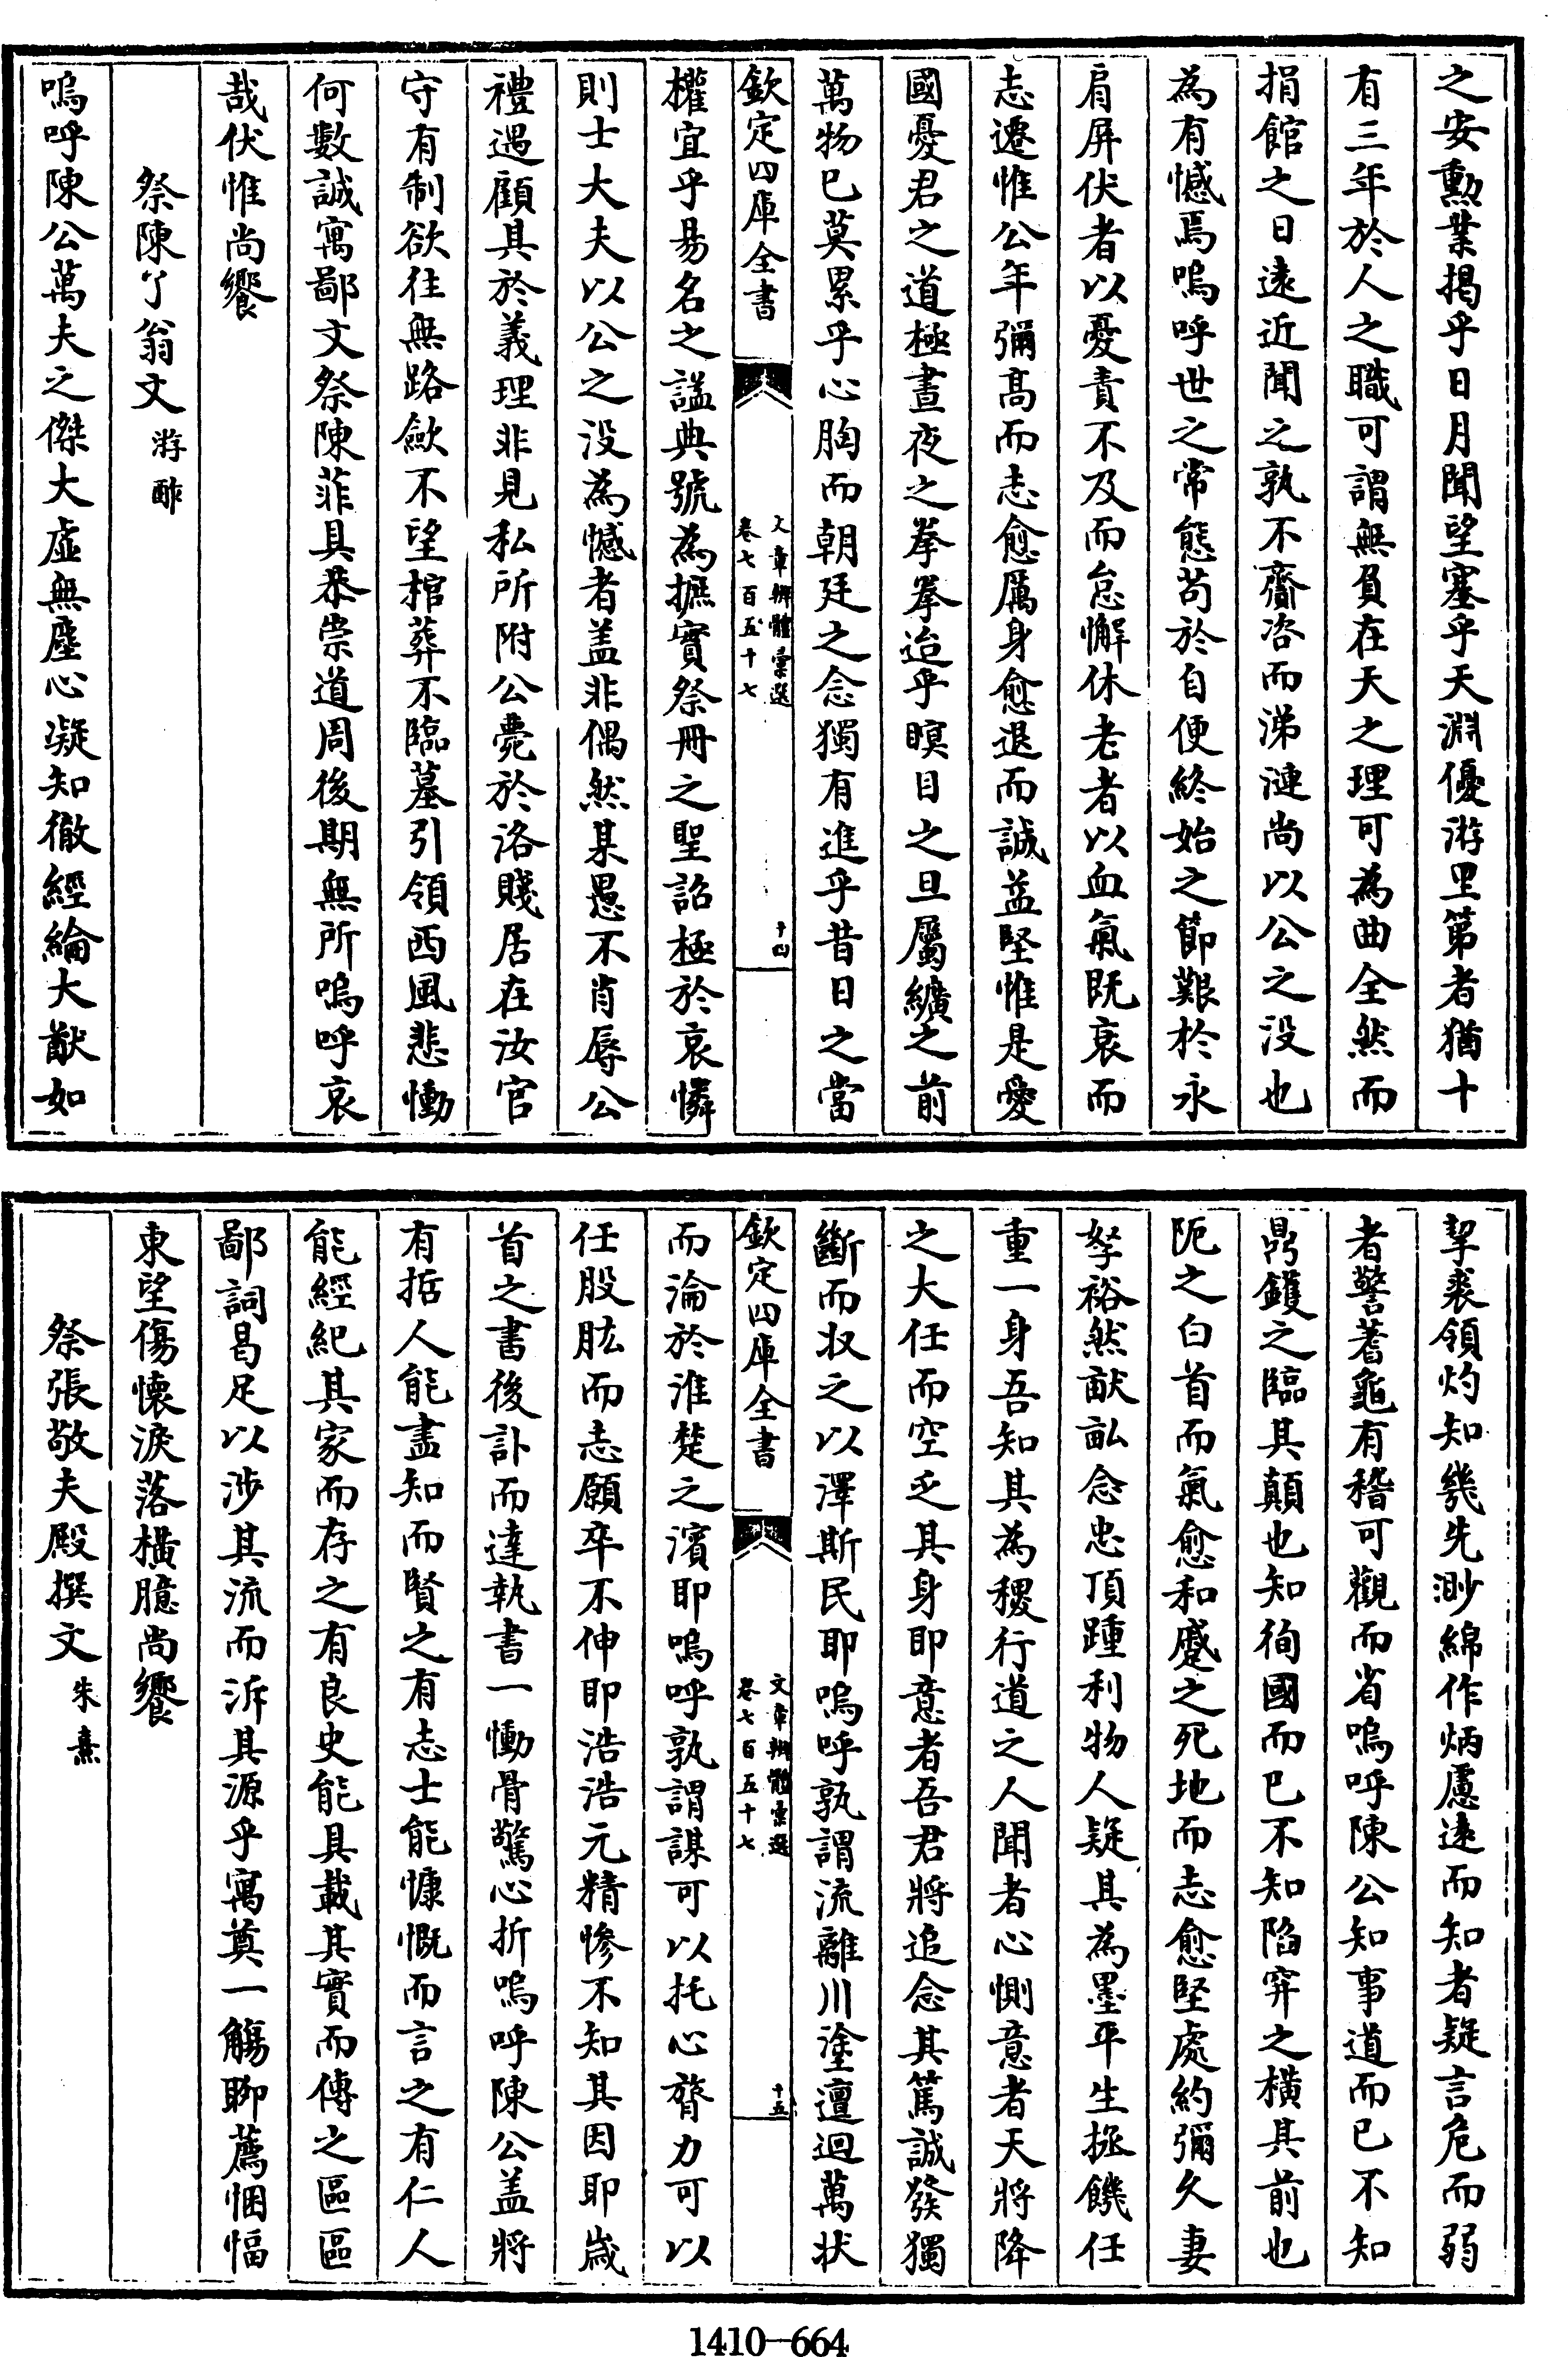 之安勲業揭乎日月聞望塞乎天淵優游里第者猶十
有三年於人之職可謂無負在天之理可為曲全然而
捐館之日遠近聞之孰不齎咨而涕漣尚以公之没也
為有憾焉嗚呼世之常態苟於自便終始之節艱於永
肩屏伏者以憂責不及而怠懈休老者以血氣既衰而
志遷惟公年彌高而志愈厲身愈退而誠益堅惟是愛
國憂君之道極晝夜之拳拳迨乎瞑目之旦屬纊之前
萬物已莫累乎心胸而朝廷之念獨有進乎昔日之當
欽定四庫全書
文章辨體彙選
卷七百五十七
十四
權宜乎易名之諡典號為摭實祭冊之聖詔極於哀憐
則士大夫以公之没為憾者盖非偶然某愚不肖辱公
禮遇顧其於義理非見私所附公薨於洛賤居在汝官
守有制欲往無路歛不望棺葬不臨墓引領西風悲慟
何數誠寓鄙文祭陳菲具恭崇道周後期無所嗚呼哀
哉伏惟尚饗
祭陳了翁文 游酢
嗚呼陳公萬夫之傑大虛無塵心凝知徹經綸大猷如
挈裘領灼知幾先渺綿作炳慮遠而知者疑言危而弱
者警蓍龜有稽可觀而省嗚呼陳公知事道而已不知
鼎鑊之臨其顛也知徇國而已不知陷穽之橫其前也
阨之白首而氣愈和蹙之死地而志愈堅處約彌久妻
孥裕然畎畝念忠頂踵利物人疑其為墨平生拯饑任
重一身吾知其為稷行道之人聞者心惻意者天將降
之大任而空乏其身耶意者吾君將追念其篤誠發獨
斷而收之以澤斯民耶嗚呼孰謂流離川塗邅迴萬狀
欽定四庫全書
文章辨體彙選
卷七百五十七
十五
而淪於淮楚之濱耶嗚呼孰謂謀可以托心膂力可以
任股肱而志願卒不伸耶浩浩元精慘不知其因耶歲
首之書後訃而達執書一慟骨驚心折嗚呼陳公盖將
有哲人能盡知而賢之有志士能慷慨而言之有仁人
能經紀其家而存之有良史能具載其實而傳之區區
鄙詞曷足以涉其流而泝其源乎寓奠一觴聊薦悃愊
東望傷懷淚落橫臆尚饗
祭張敬夫殿撰文 朱熹
1410-664